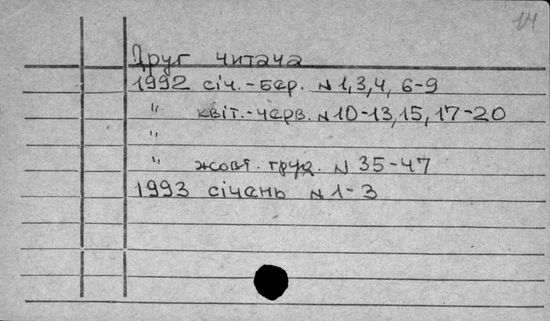 14
Друг читача
1992 січ.-бер. N 1,3,4, 6-9
" квіт.-черв. N 10-13, 15, 17-20
"
" жовт. груд. N 35-47
1993 січень N 1-3